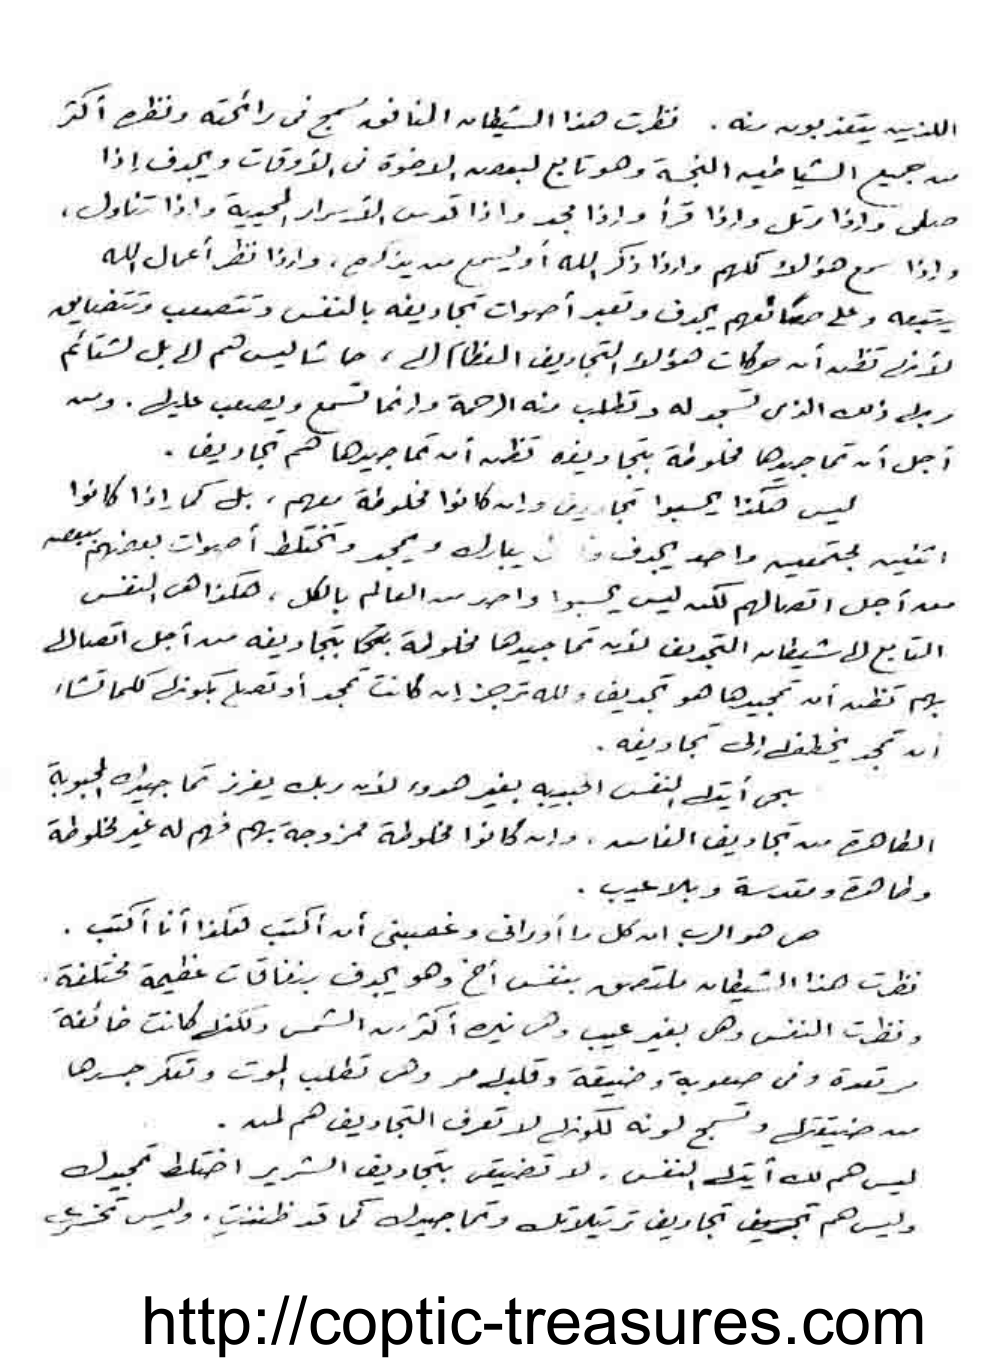 اللذين يتعذبون منه . نظرت هذا الشيطان المنافق سمج في رائحته ونظره أكثر
من جميع الشياطين النجسة وهو تابع لبعض الاخوة في الأوقات ويجدف إذا
صلى وإذا رتل وإذا قرأ وإذا مجد وإذا قدس الأسرار المحيية وإذا تناول ،
وإذا سمع هؤلاء كلهم وإذا ذكر الله أو يسمع من يذكره ، وإذا نظر أعمال الله
يتبعه وعلى صنائعهم يجدف وتعبر أصوات تجاديفه بالنفس وتتصعب وتتضايق
لأنها تظن أن حركات هؤلاء التجاديف العظام لها ، حاشا ليس هم لها بل لشتائم
ربها ذلك الذي تسجد له وتطلب منه الرحمة وإنما تسمع ويصعب عليها . ومن
أجل أن تماجيدها مخلوطة بتجاديفه تظن أن تماجيدها هم تجاديف .
ليس هكذا يحسبوا تجاديف وان كانوا مخلوطة معهم ، بل كما إذا كانوا
اثنين مجتمعين واحد يجدف يبارك ويمجد وتختلط أصوات بعضهم ببعض
من أجل اتصالهم لكن ليس يحسبوا واحد من العالم بالكل ، هكذا هي النفس
التابع لها شيطان التجديف لأن تماجيدها مخلوطة بتجاديفه من أجل اتصالها
بهم تظن أن تمجيدها هو تجديف ان كانت تمجد أو تصلي بكونها كلما تشاء
أن تمجد يخطفها إلى تجاديفه .
أيتها النفس الحبيبة بغير هدوء لأن ربك يفرز تماجيدك المحبوبة
الطاهرة من تجاديف الغاش . وان كانوا مخلوطة ممزوجة بهم فهم له غير مخلوطة
وطاهرة ومقدسة وبلا عيب .
حي هو الرب ان كل ما أوراني وغصبني أن أكتب هكذا أنا أكتب .
نظرت هذا الشيطان ملتصق بنفس أخ وهو يجدف بنفاقات عظيمة مختلفة .
ونظرت النفس وهي بغير عيب وهي نيره أكثر من الشمس ولكنها كانت خائفة
مرتعدة وفي صعوبة وضيقة وقلبها مر وهي تطلب الموت وتعكر جسدها
من ضيقتها وتسمج لونه لكونها لا تعرف التجاديف هم لمن .
ليس هم لك أيتها النفس . لا تضيقي بتجاديف الشرير اختلط تمجيدك
وليس هم تجاديف ترتيلاتك وتماجيدك كما قد ظننتِ . وليس
http://coptic-treasures.com